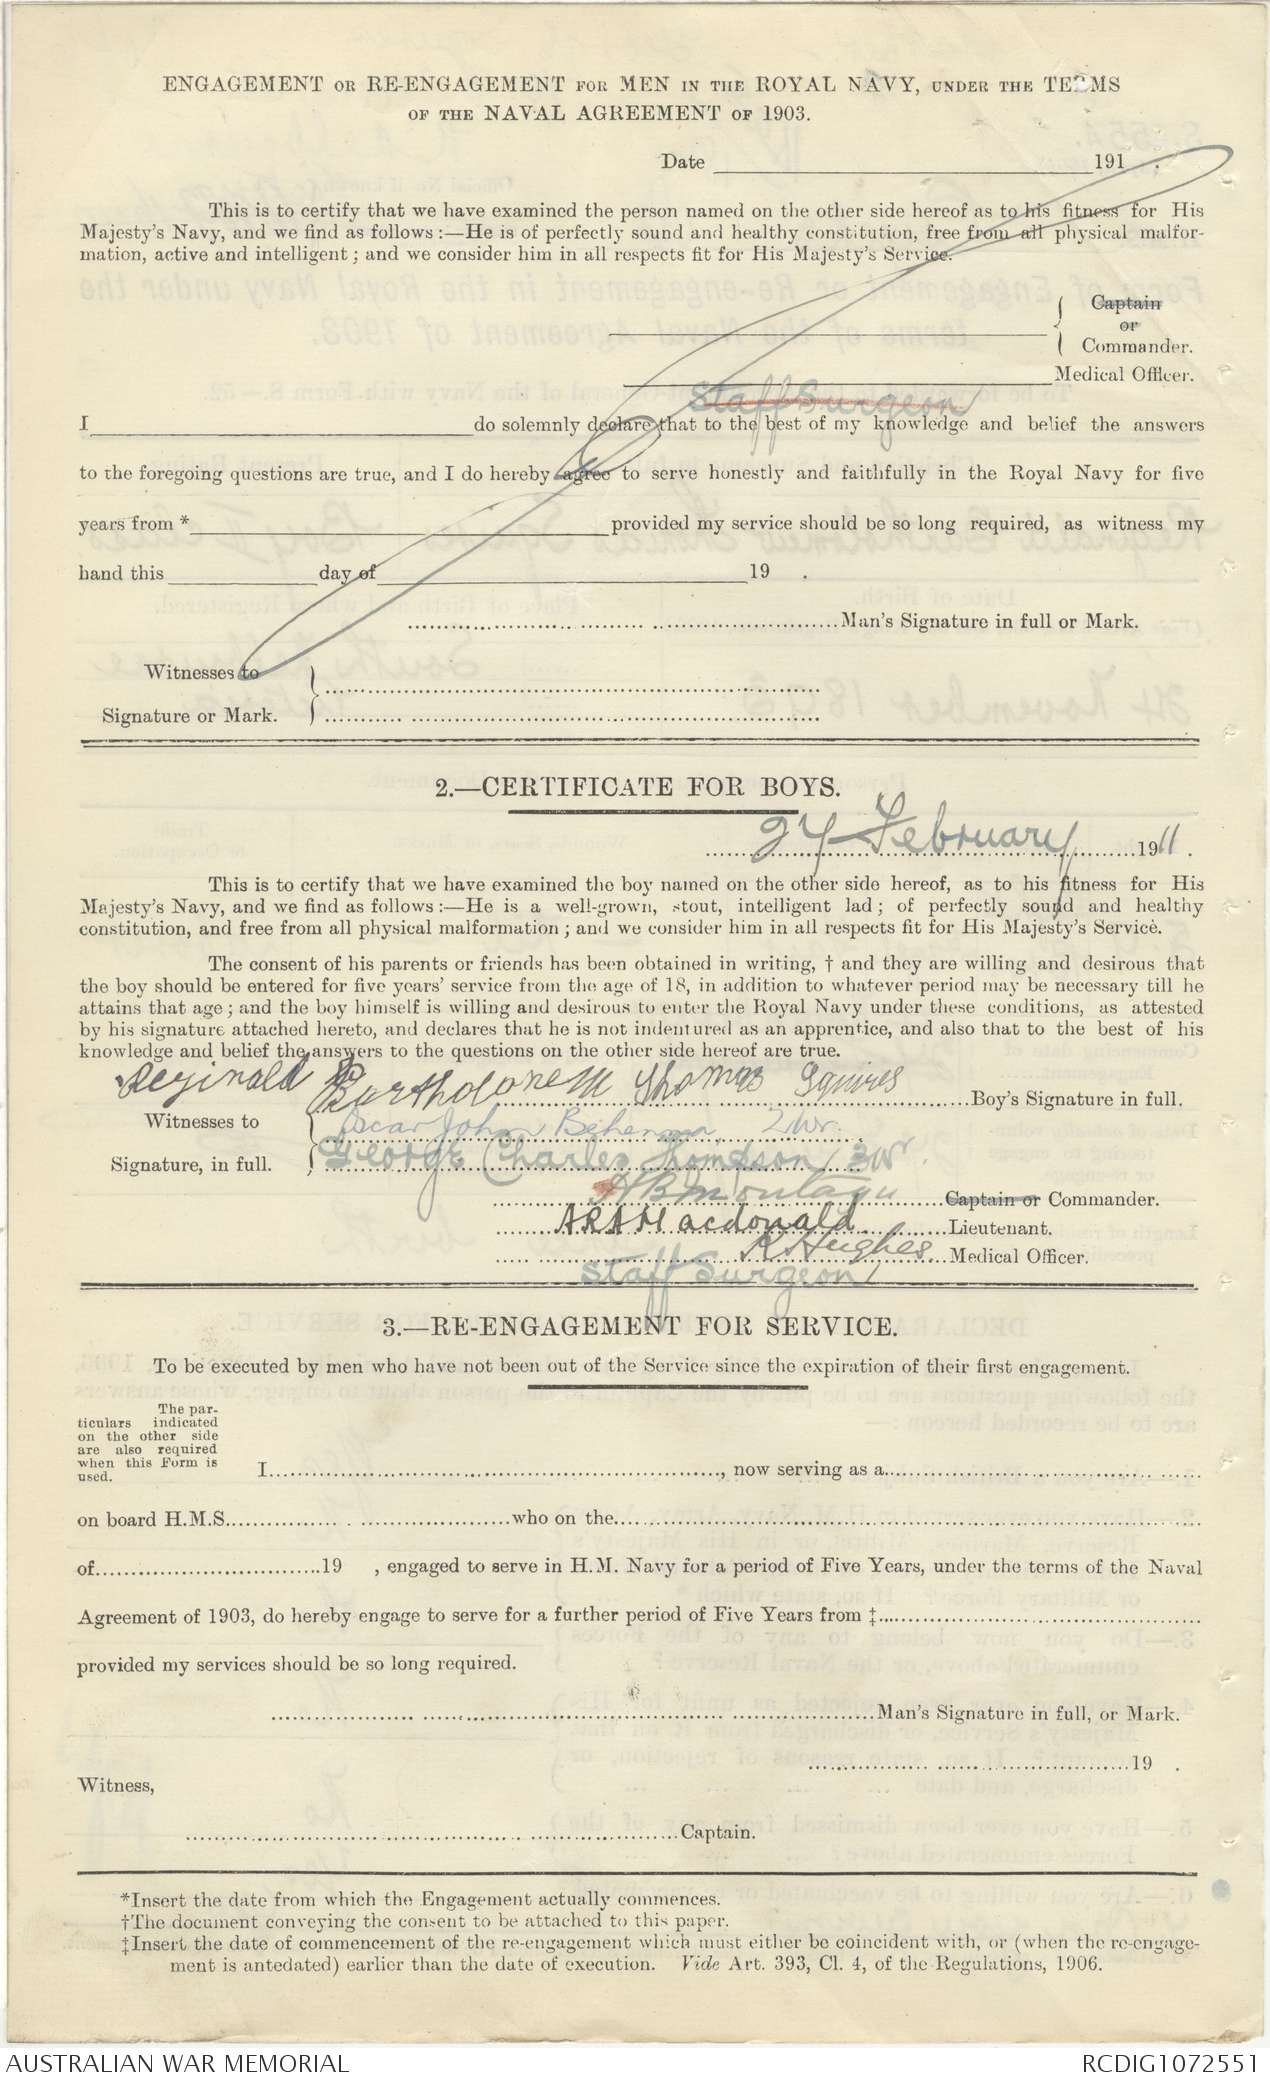 ENGAGEMENT OR RE-ENGAGEMENT FOR MEN IN THE ROYAL NAVY, UNDER THE TERMS
OF THE NAVAL AGREEMENT OF 1903.
Date 191 .
This is to certify that we have examined the person named on the other side hereof as to his fitness for His
Majesty's Navy, and we find as follows:—He is of perfectly sound and healthy constitution, free from all physical malfor-
mation, active and intelligent; and we consider him in all respects fit for His Majesty's Service.
Captain
or
Commander.
Medical Officer.
Staff Surgeon
I do solemnly declare that to the best of my knowledge and belief the answers
to the foregoing questions are true, and I do hereby agree to serve honestly and faithfully in the Royal Navy for five
years from * provided my service should be so long required, as witness my
hand this day of 19 .
Man's Signature in full or Mark.
Witnesses to
Signature or Mark.
2.—CERTIFICATE FOR BOYS.
27 February 1911.
This is to certify that we have examined the boy named on the other side hereof, as to his fitness for His
Majesty's Navy, and we find as follows:—He is a well-grown, stout, intelligent lad; of perfectly sound and healthy
constitution, and free from all physical malformation; and we consider him in all respects fit for His Majesty's Service.
The consent of his parents or friends has been obtained in writing, † and they are willing and desirous that
the boy should be entered for five years' service from the age of 18, in addition to whatever period may be necessary till he
attains that age; and the boy himself is willing and desirous to enter the Royal Navy under these conditions, as attested
by his signature attached hereto, and declares that he is not indentured as an apprentice, and also that to the best of his
knowledge and belief the answers to the questions on the other side hereof are true.
Reginald Bartholomew Thomas Squires Boy's Signature in full.
Witnesses to
Oscar John
Signature, in full.
George Charles Thompson
A B Montagu Captain or Commander.
A R A Macdonald Lieutenant.
R Hughes Medical Officer.
Staff Surgeon
3.—RE-ENGAGEMENT FOR SERVICE.
To be executed by men who have not been out of the Service since the expiration of their first engagement.
The par-
ticulars indicated
on the other side
are also required
when this Form is
used.
I, now serving as a
on board H.M.S. who on the
of 19 , engaged to serve in H.M. Navy for a period of Five Years, under the terms of the Naval
Agreement of 1903, do hereby engage to serve for a further period of Five Years from ‡
provided my services should be so long required.
Man's Signature in full, or Mark.
19 .
Witness,
Captain.
*Insert the date from which the Engagement actually commences.
†The document conveying the consent to be attached to this paper.
‡Insert the date of commencement of the re-engagement which must either be coincident with, or (when the re-engage-
ment is antedated) earlier than the date of execution. Vide Art. 393, Cl. 4, of the Regulations, 1906.
AUSTRALIAN WAR MEMORIAL
RCDIG1072551